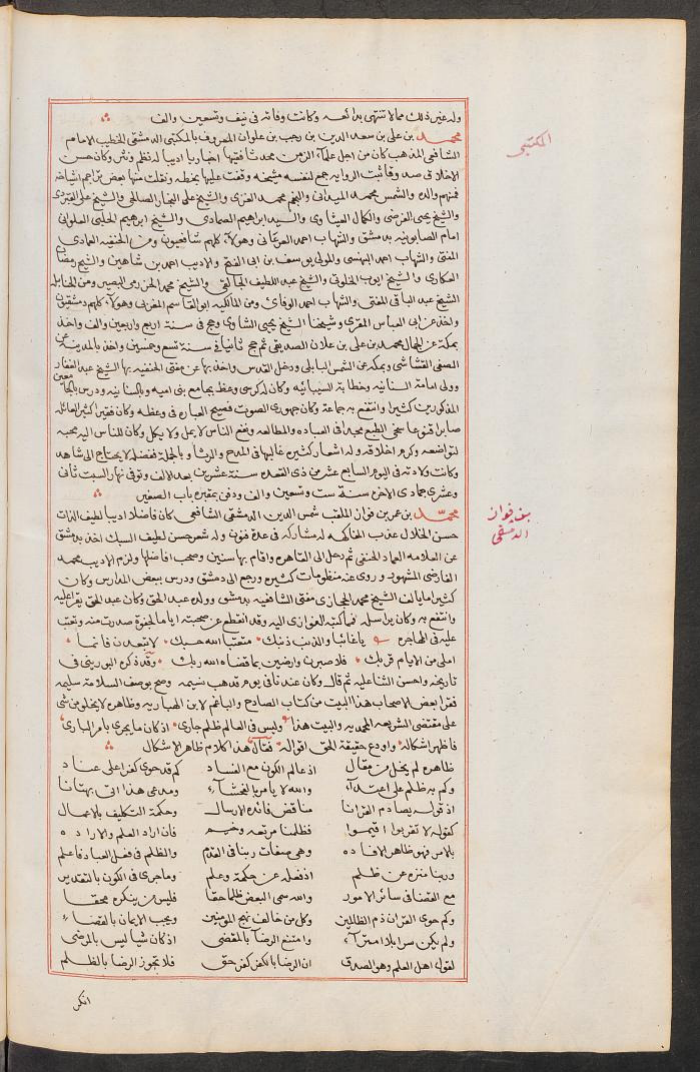 وله غير ذلك مما لا تنتهى بدائعه وكانت وفاته فى نيف وتسعين والف
محمد بن على بن سعد الدين بن رجب بن علوان المعروف بالمكتبى الدمشقى الخطيب الامام
الشافعى المذهب كان من اجل علماء الزمن محدثا فقيها اخباريا اديبا له نظم ونثر وكان حسن
الاخلاق صدوقا ثبت الرواية جمع لنفسه مشيخه وقفت عليها بخطه ونقلت منها بعض تراجم اشياخه
فمنهم والده والشمس محمد الميدانى والنجم محمد الغزى والشيخ على النجار الصالحى والشيخ على القبردى
والشيخ يحيى الفرضى والكمال العيثاوى والسيد ابراهيم الصمادى والشيخ ابراهيم الحلبى الصابونى
امام الصابونيه بدمشق والشهاب احمد العرعانى وهولاء كلهم شافعيون ومن الحنفيه العمادى
المفتى والشهاب احمد البهنسى والمولى يوسف بن ابى الفتح والاديب احمد بن شاهين والشيخ رمضان
العكارى والشيخ ايوب الخلوتى والشيخ عبد اللطيف الجالقى والشيخ محمد الحزرمى البصير ومن الحنابله
الشيخ عبد الباقى المفتى والشهاب احمد الوفائى ومن المالكيه ابو القاسم المغربى وهولاء كلهم دمشقيون
واخذ عن ابى العباس المقرى وشيخنا الشيخ يحيى الشاوى وحج فى سنة اربع واربعين والف واخذ
بمكة عن الجمال محمد بن علان الصديقى ثم حج ثانيا فى سنة تسع وخمسين واخذ بالمدينه عن
الصفى القشاشى وبمكه عن الشمس البابلى ودخل القدس واخذ بها عن مفتى الحنفيه بها الشيخ عبد الغفار
وولى امامة السنانيه وخطابة السيبائيه وكان له كرسى وعظ بجامع بنى اميه وبالسنانيه ودرس بالجامعين
المذكورين كثيرا وانتفع به جماعة وكان جهورى الصوت فصيح العباره فى وعظه وكان فقيرا كثير العائله
صابرا قنوعا سخى الطبع مجيدا فى العباده والمطالعه ونفع الناس لا يمل ولا يكل وكان للناس اليه محبه
لتواضعه وكرم اخلاقه وله اشعار كثيره غالبها فى المدح والرثا وبالجلة ففضله لا يحتاج الى شاهد
وكانت ولادته فى اليوم السابع عشر من ذى القعده سنة عشرين بعد الالف وتوفى نهار السبت ثانى
وعشرى جمادى الاخره سنة ست وتسعين والف ودفن بمقبرة باب الصغير
محمد بن عمر بن فواز الملقب شمس الدين الدمشقى الشافعى كان فاضلا اديبا لطيف الذات
حسن الخلال عذب المفاكهه له مشاركه فى عدة فنون وله شعر حسن لطيف السبك اخذ بدمشق
عن العلامه العماد الحنفى ثم رحل الى القاهره واقام بها سنين وصحب افاضلها ولزم الاديب محمد
الفارضى المشهور وروى عنه منظومات كثيره ورجع الى دمشق ودرس ببعض المدارس وكان
كثيرا ما يالف الشيخ محمد الحجازى مفتى الشافعيه بدمشق وولده عبد الحق وكان عبد الحق يقرا عليه
وانتفع به وكان يراسله فما كتبه الفوازى اليه وقد انقطع عن صحبته اياما لجفوة صدرت منه ويعتب
عليه فى الهاجره يا غائبا والذنب ذنبك متعتبا الله حسبك لا تبعدن فانما
املى من الايام قربك فلاصبرن وارضين بما قضاه الله ربك وقد ذكره البورينى فى
تاريخه واحسن الثنا عليه ثم قال وكان عندنا فى يوم قد هب نسيمه وصح بوصف السلامة سليمه
فقرا بعض الاصحاب هذا البيت من كتاب الصادح والباغم لابن الهباريه وظاهره لا يخلو من شى
على مقتضى الشريعه المحمديه والبيت هذا وليس فى العالم ظلم جارى اذ كان ما يجرى بامر البارى
فاظهر اشكاله واودع حقيقة الحق اقواله فقال هذا كلام ظاهر الاشكال
ظاهره لم يخل من مقال اذ عالم الكون مع الفساد كم قد حوى كفرا على عناد
وكم به ظلم على اعتداء والله لا يامر بالفحشاء ومدعى هذا اتى بهتانا
اذ قوله يصادم القرانا مناقض فائدة الارسال وحكمة التكليف بالاعمال
كقوله لا تقربوا اقيموا فظلمنا مرتعه وخيم فان اراد العلم والاراده
بالامر فهو ظاهر الافاده وهى صفات ربنا فى القدم والظلم فى فعل العباد فاعلم
وربنا منزه عن ظلم اذ فعله عن حكمة وعلم وما جرى فى الكون بالتقدير
مع القضا فى سائر الامور والله سمى البعض ظلما حقا فليس من ينكره محقا
وكم حوى القران ذم الظالمين وكل من خالف نهج المومنين ويجب الايمان بالقضاء
ولم يكن سرا بلا امتراء وامتنع الرضا بالمقضى اذ كان شيا ليس بالمرضى
لقول اهل العلم وهو الصدق ان الرضا بالكفر كفر حق فلا تجوز الرضا بالظلم
المكتبى
بن فواز
الدمشقى